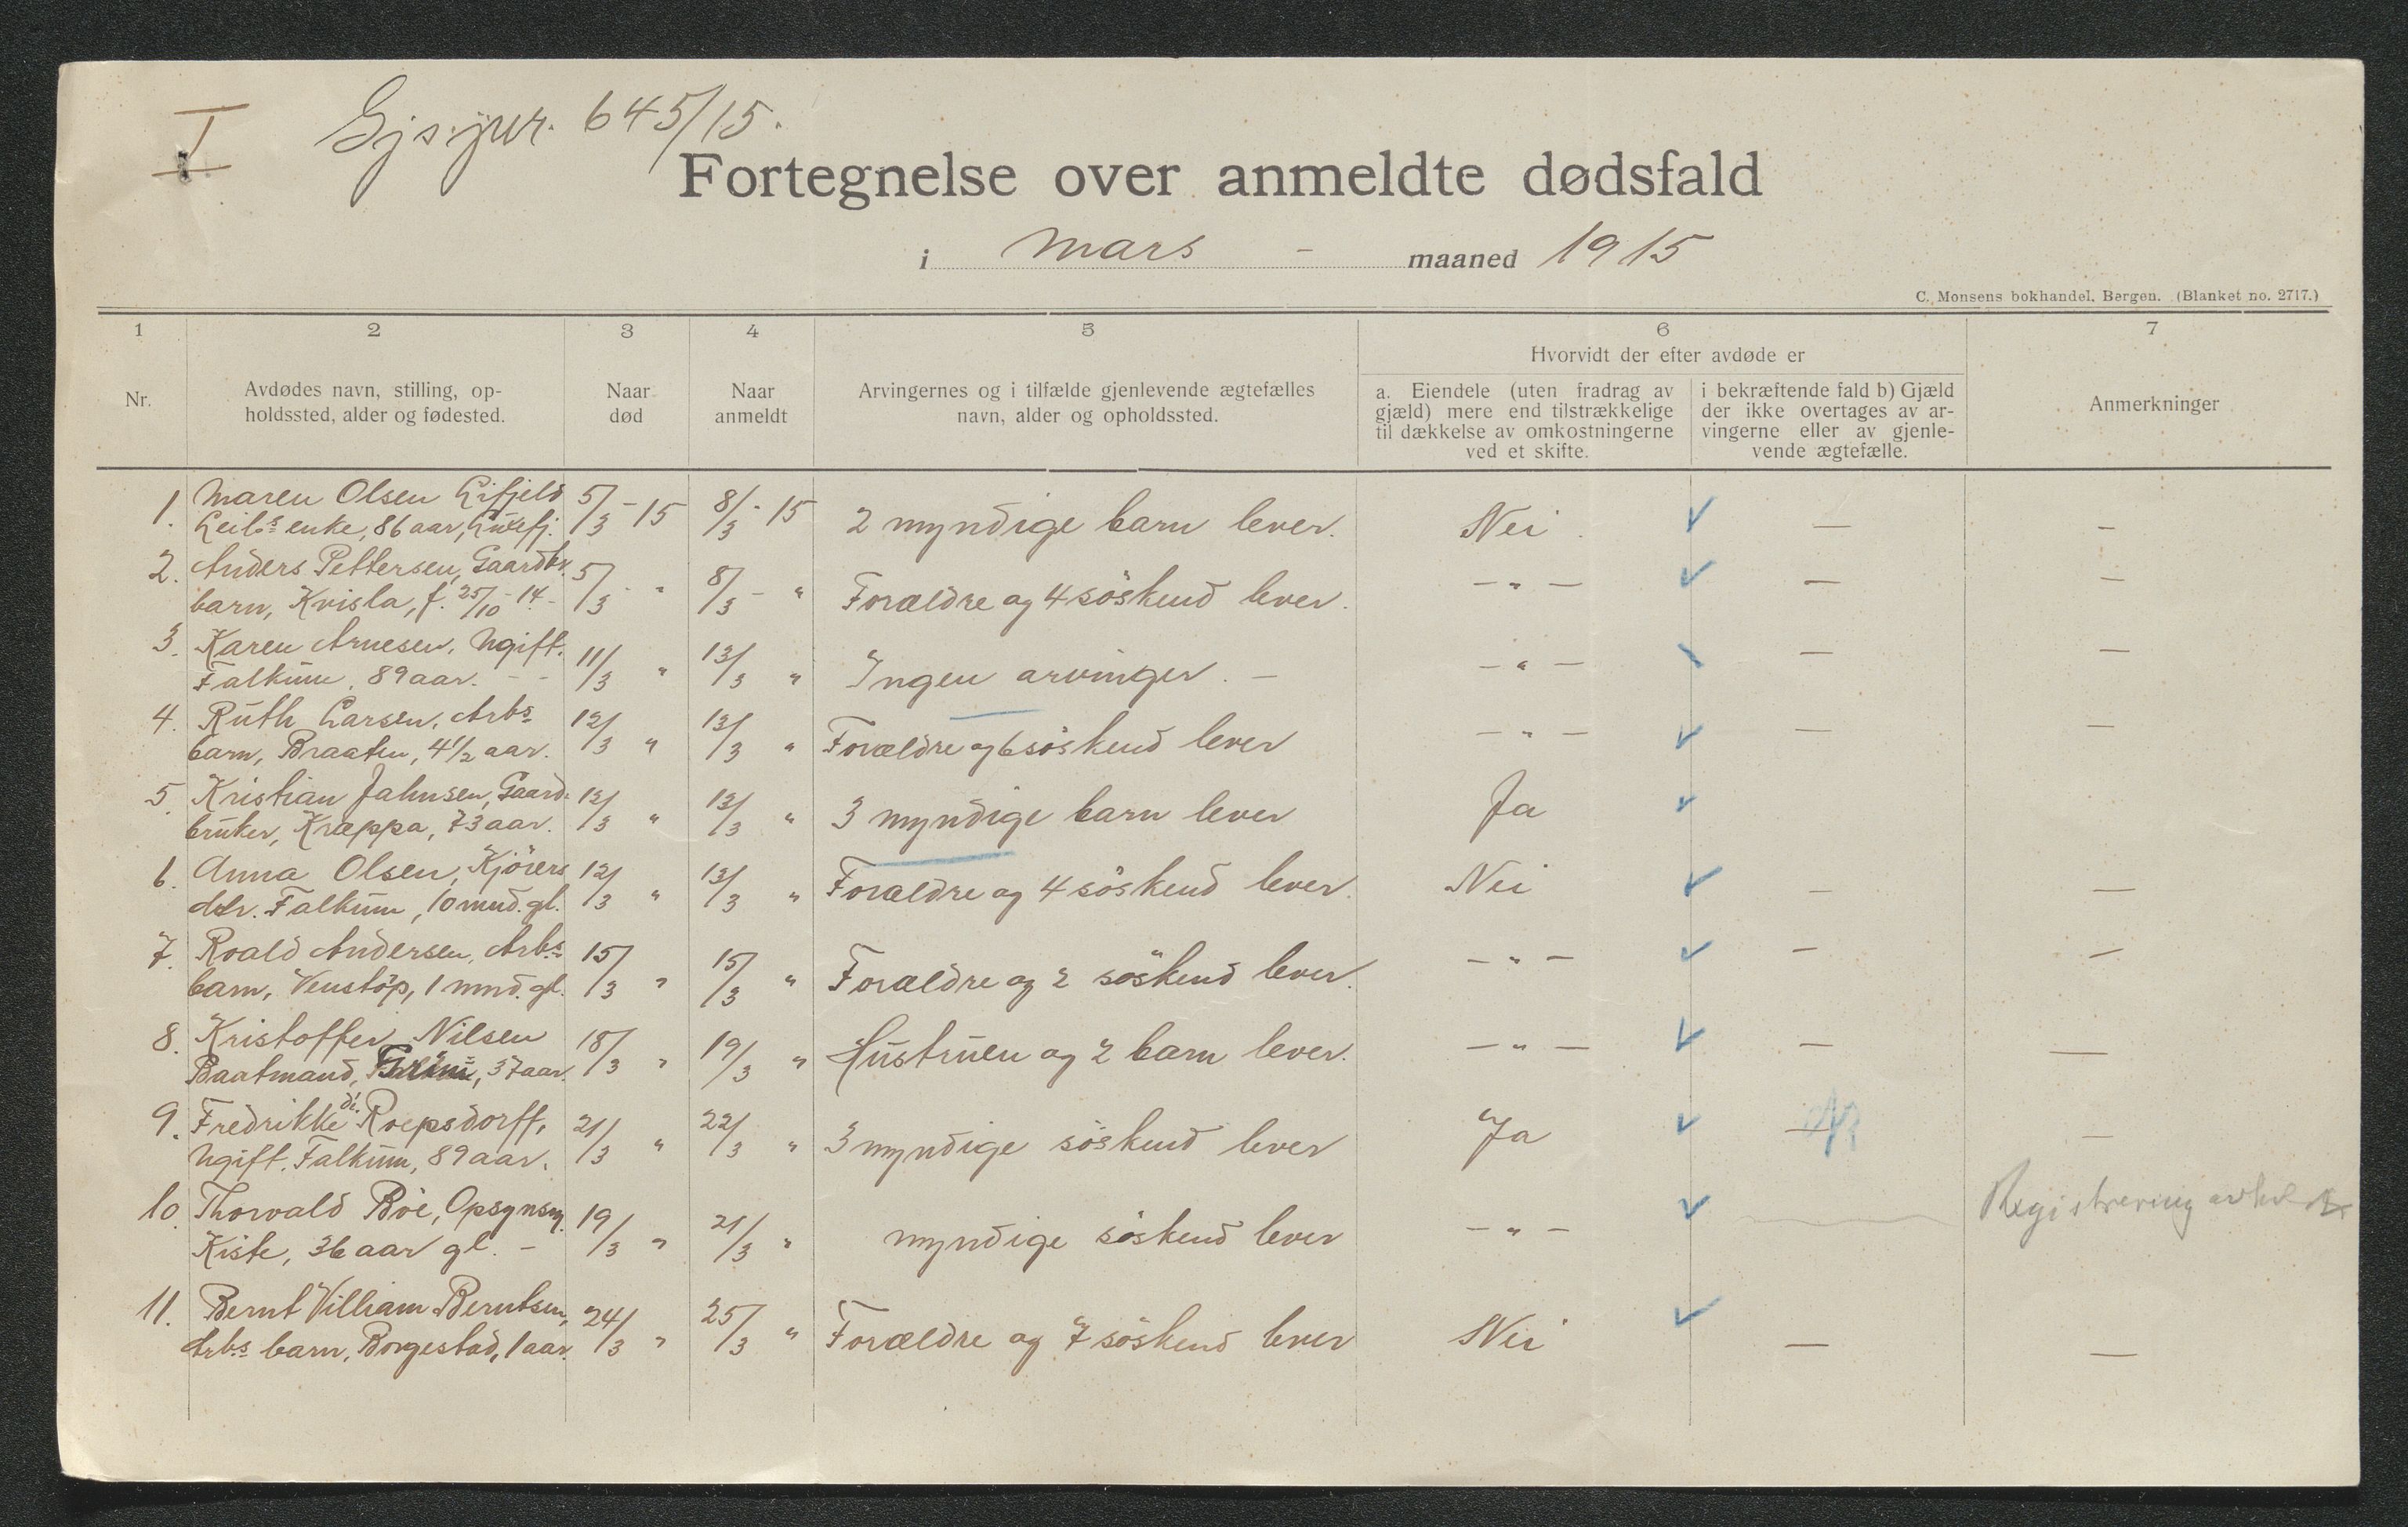 I
Gjs.jur. 645/15.
Fortegnelse over anmeldte dødsfald
i Mars - maaned 1915
C. Monsens bokhandel, Bergen. (Blanket no. 2717.)
1 2 3 4 5 6 7
Hvorvidt der efter avdøde er
Nr.
Avdødes navn, stilling, op-
holdssted, alder og fødested.
Naar
død
Naar
anmeldt
Arvingernes og i tilfælde gjenlevende ægtefælles
navn, alder og opholdssted.
a. Eiendele (uten fradrag av
gjæld) mere end tilstrækkelige
til dækkelse av omkostningerne
ved et skifte.
i bekræftende fald b) Gjæld
der ikke overtages av ar-
vingerne eller av gjenle-
vende ægtefælle.
Anmerkninger
1. Maren Olsen Lifjeld 5/3 - 15 8/3 - 15 2 myndige barn lever. Nei ✓ — -
Leil.s enke, 86 aar,
2. Anders Pettersen, Gaardbr. 5/3 - " 8/3 - " Forældre og 4 söskend lever. — " — ✓ — —
barn, Kvisla, f. 25/10 - 14 -
3. Karen Arnesen, Ugift. 11/3 " 13/3 " Ingen arvinger. - — " — — —
Falkum, 89 aar. - -
4. Ruth Larsen, Arb.s 12/3 " 13/3 " Forældre og 6 söskend lever — " — ✓ — —
barn, Braaten, 4 1/2 aar.
5. Kristian Jahnsen, Gaard- 12/3 " 13/3 " 3 myndige barn lever Ja ✓
bruker, Kræppa, 73 aar.
6. Anna Olsen, Kjörers 12/3 " 13/3 " Forældre og 4 söskend lever. Nei ✓ — —
dtr. Falkum, 10 mnd. gl.
7. Roald Andersen, Arb.s 15/3 " 15/3 " Forældre og 2 söskend lever. — " — ✓ — —
barn, Venstöp, 1 mnd. gl.
8. Kristoffer Nilsen 18/3 " 19/3 " Hustruen og 2 barn lever. — " — ✓ — —
Baatmand, 37 aar.
9. Fredrikke di Roepsdorff, 21/3 " 22/3 " 3 myndige söskend lever Ja ✓ — —
Ugift. Falkum, 89 aar.
10. Thorvald Böe, Opsynsm. 19/3 " 21/3 " myndige söskend lever — " — ✓ Registrering
Kiste, 36 aar gl. -
11. Bernt Villiam Berntsen, 24/3 " 25/3 " Forældre og 7 söskend lever Nei ✓ — —
Arb.s barn, Borgestad, 1 aar.